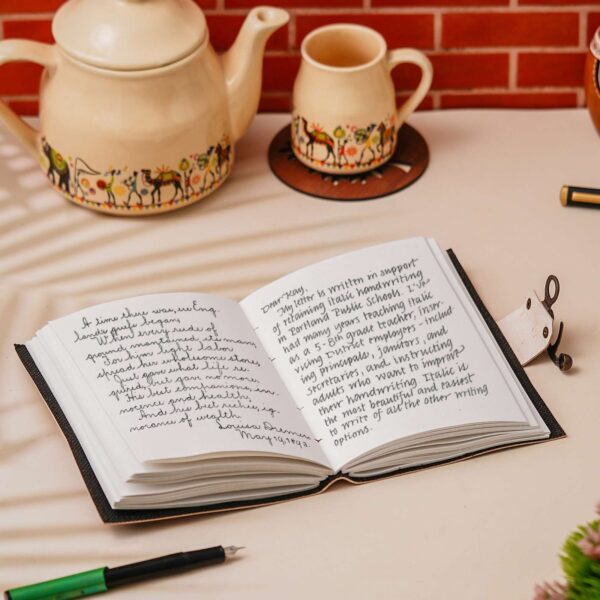 A time there was, ere Eng.
lands griefs began,
When every rude of
ground, maintained its man,
For him light labor
spread her wholesome stores,
Just gave what life re.
quired, but gave no more,
His best companions, in.
nocence and health,
And his best riches, ig.
norance of wealth.
Louisa
May 19, 1893.
Dear Kay,
My letter is written in support
of retaining italic handwriting
in Portland Public Schools. I've
had many years teaching italic
as a 5-8th grade teacher, inser-
vicing District employees - includ
ing principals, janitors, and
secretaries, and instructing
adults who want to improve
their handwriting. Italic is
the most beautiful and easiest
to write of all the other writing
options.